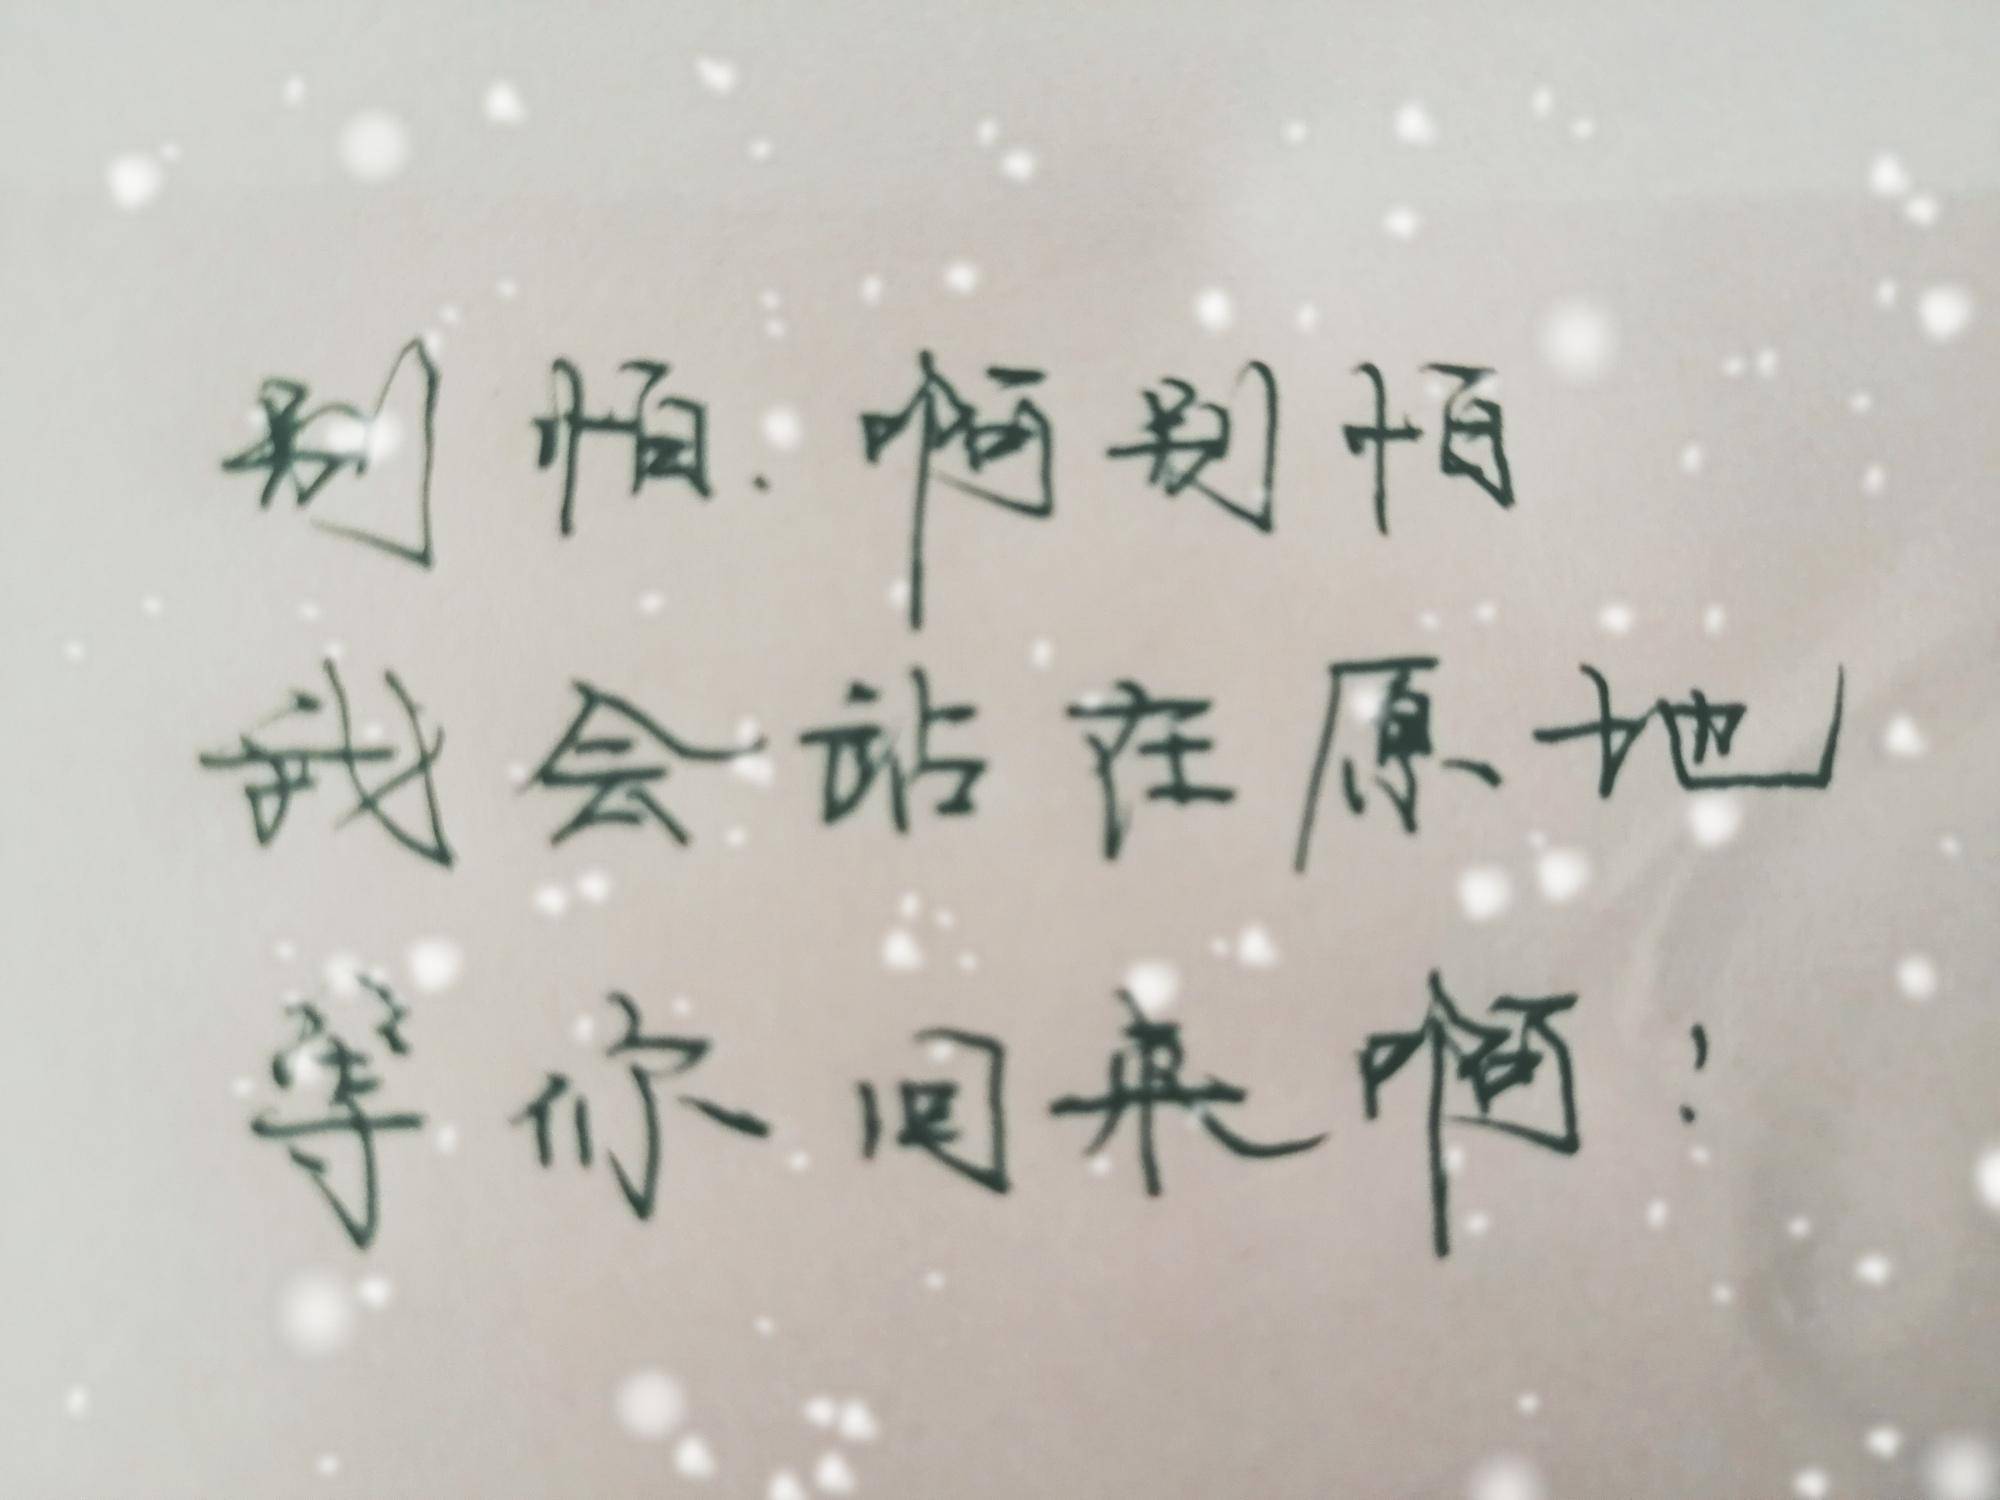 别怕.啊别怕
我会站在原地
等你回来啊!